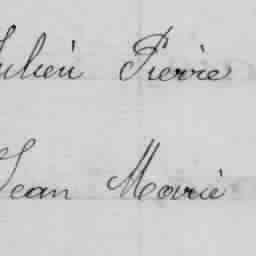 Julien Pierre
Jean Marie